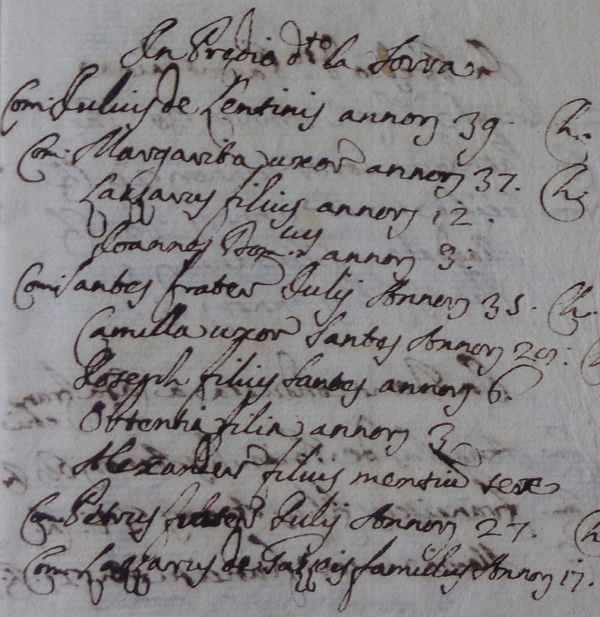 In Predio d.to la Torra
Com: Julius de Lentinis annorʒ 39. Ch:
Com: Margarita uxor annorʒ 37. Ch:
Lazzarus filius annorʒ 12.
Joannes Dom:cus annorʒ 3:
Com: Santes frater Julij Annorʒ 35. Ch:
Camilla uxor Santes Annorʒ
Joseph filius Santes annorʒ 6.
filia annorʒ 3
Alexander filius mensiu
Com: Petrus frater Julij Annorʒ 27. Ch
Com: Lazzarus de famulus Annorʒ 17.